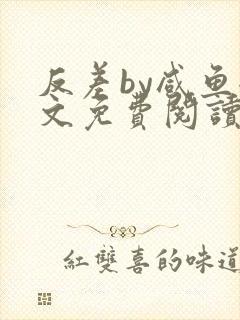 反差by咸鱼
文免费閱讀
紅雙喜的味道